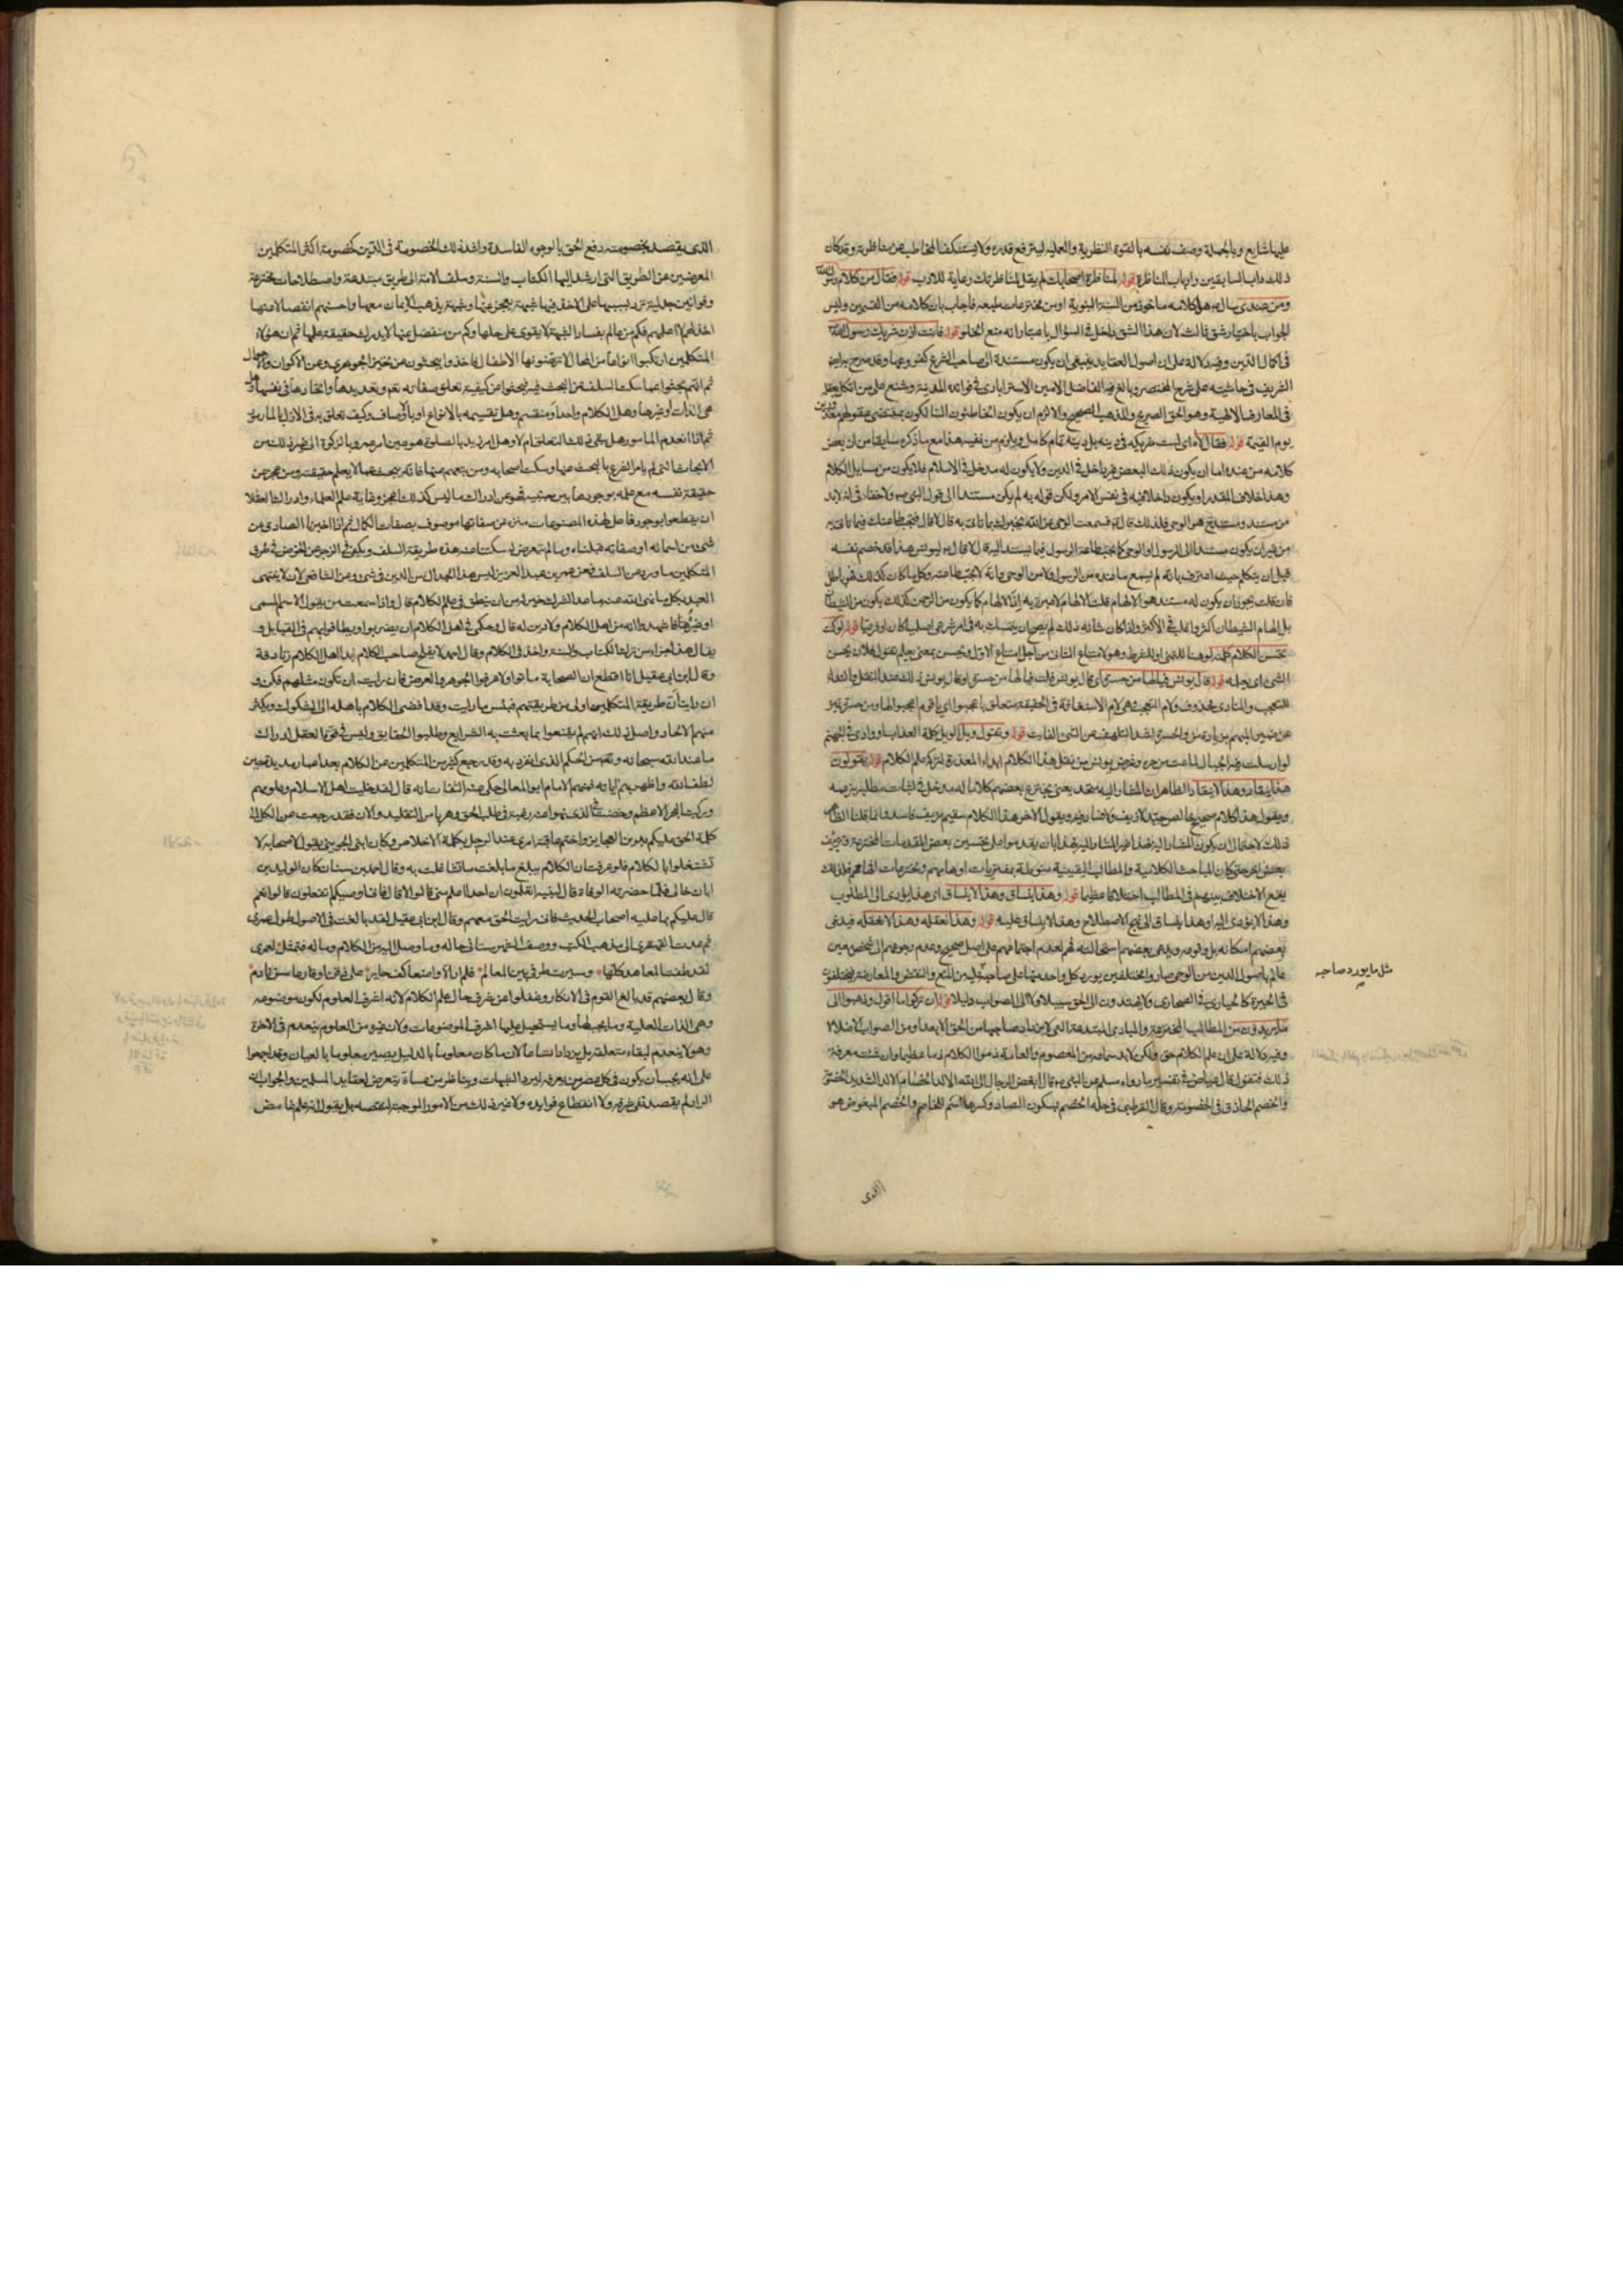 عليها شايع وبالجملة وصف نفسه بالقوة النظرية والعملية ليترفع قدره ولا يستنكف المخاطب عن مناظرته وقد كان
ذلك داب السابقين وارباب المناظرة قوله لمناظرة اصحابك لم يقل لمناظرتك رعاية للادب قوله فقال من كلام رسول الله
ومن عندي سال هل كلامه ماخوذ من السنة النبوية او من مخترعات طبعه فاجاب بان كلامه من القسمين وليس
الجواب باختيار شق ثالث لان هذا الشق داخل في السؤال باعتبار انه منع الخلو قوله فانت اذن شريك رسول الله
في اكمال الدين وفيه دلالة على ان اصول العقايد ينبغي ان يكون مستندة الى صاحب الشرع كفروعها وقد صرح به
الشريف في حاشيته على شرح المختصر وبالغ فيه الفاضل الامين الاسترابادي في فوائد المدنية وشنع على من اتكل بعقله
في المعارف الالهية وهو الحق الصريح والمذهب الصحيح والا لزم ان يكون الخاطئون السالكون بمقتضى عقولهم معذورين
يوم القيمة قوله فقال لا اي لست شريكه في دينه بل دينه تام كامل ويلزم من نفيه هذا مع ما ذكره سابقا من ان بعض
كلامه من عنده اما ان يكون ذلك البعض غير داخل في الدين ولا يكون له مدخل في الاسلام فلا يكون من مسايل الكلام
وهذا خلاف المقدر او يكون داخلا فيه في نفس الامر ولكن قوله به لم يكن مستندا الى قول النبي ص ولا خفاء في انه لابد
من مستند ومستنده هو الوحي فلذلك قال له فسمعت الوحي عن الله يخبرك بما تاتي به قال لا قال فتجب طاعتك فيما تاتي به
من غير ان يكون مستندا الى الرسول او الوحي كما تجب طاعة الرسول فيما يستند اليه قال لا قال يا يونس هذا قد خصم نفسه
قبل ان يتكلم حيث اعترف بانه لم يسمع ما عنده من الرسول ولا من الوحي وانه لا تجب طاعته وكل ما كان كذلك فهو باطل
فان قلت يجوز ان يكون له مستند هو الالهام قلت الالهام لا عبرة به اذ الالهام كما يكون من الرحمن كذلك يكون من الشيطان
بل الهام الشيطان اكثر واغلب في الاكثر واذا كان شانه ذلك لم يصح ان يتمسك به في امر شرعي اصليا كان او فرعيا قوله لو كنت
تحسن الكلام كلمته لو هنا للتمني او للشرط وهو لامتناع الثاني من اجل امتناع الاول وتحسن بمعنى تعلم تقول فلان يحسن
الشيء اي يعلمه قوله قال يونس فيالها من حسرة اي قال يونس قلت فيالها من حسرة او قال يونس ذلك عند النقل والنداء
للتعجب والمنادى محذوف ولام التعجب هي لام الاستغاثة في الحقيقة متعلق باعجبوا اي يا قوم اعجبوا لها ومن حسرة تميز
عن ضمير المبهم بزيادة من والحسرة اشد التلهف عن الشيء الفايت قوله وتقول ويل الويل كلمة العذاب او وادي في جهنم
لو ارسلت فيه الجبال لماعت من حره وغرض يونس من نقل هذا الكلام ابداء المعذرة لتركه علم الكلام قوله يقولون
هذا ينقاد وهذا لا ينقاد الظاهر ان المشار اليه متحد يعني يخترع بعضهم كلاما له مدخل في اثبات مطلبه بزعمه
ويقول هذا كلام صحيح خالص جيد لا زيف ولا فساد فيه ويقول الاخر هذا الكلام سقيم مزيف فاسد وانما قلنا الظاهر
ذلك لاحتمال ان يكون المشار اليه بهذا غير المشار اليه بهذا بان يقدموا على تحسين بعض المقدمات المخترعة وتزييف
بعض اخر حتى كان المباحث الكلامية والمطالب اليقينية منوطة بمفتريات اوهامهم ومخترعات افهامهم فلذلك
يقع الاختلاف بينهم في المطالب اختلافا عظيما قوله وهذا ينساق وهذا لا ينساق اي هذا يؤدي الى المطلوب
وهذا لا يؤدي اليه او هذا ينساق الى نهج الاصطلاح وهذا لا ينساق عليه قوله وهذا نعقله وهذا لا نعقله فيدعي
بعضهم امكانه بل وقوعه ويدعي بعضهم استحالته فهم لعدم اجتماعهم على اصل صحيح وعدم رجوعهم الى شخص معين
عالم باصول الدين من الوحي صاروا مختلفين يورد كل واحد منهما على صاحبه من المنع والنقض والمعارضة فيختلفون
في الحيرة كالحيارى في الصحارى ولا يهتدون الى الحق سبيلا ولا الى الصواب دليلا قوله ان تركوا ما اقول وذهبوا الى
ما يريدون من المطالب المخترعة والمبادي المبتدعة التي لا يزداد صاحبها من الحق الا بعدا ومن الصواب الا ضلالا
وفيه دلالة على ان علم الكلام حق ولكن لابد سماعه من المعصوم والعامة ذموا الكلام ذما عظيما وان شئت معرفة
ذلك فنقول قال عياض في تفسير ما رواه مسلم عن النبي ص قال ابغض الرجال الى الله الالد الخصام الالد الشديد الخصومة
والخصم الحاذق في الخصومة وقال القرطبي في حله الخصم بسكون الصاد وكسرها اسم للخاصم والخصم المبغوض هو
مثل ما يورد صاحبه
الذي
الذي يقصد بخصومته دفع الحق بالوجوه الفاسدة واشد ذلك الخصومة في الدين كخصومة اكثر المتكلمين
المعرضين عن الطريق التي ارشد اليها الكتاب والسنة وسلف الامة الى طريق مبتدعة واصطلاحات مخترعة
وقوانين جدلية ترد بسببها على الاخذ فيها شبهة يعجز عنها وشبهة يذهب الايمان معها واحسنهم انفصالا عنها
اخذلهم لا اعلمهم فكم من عالم بفساد الشبهة لا يقوى على حلها وكم من منفصل عنها لا يدرك حقيقة علمها ثم ان هؤلاء
المتكلمين ارتكبوا انواعا من المحال لا ترتضونها الاطفال فاخذوا يبحثون عن تحيز الجوهر وعن الاكوان والاحوال
ثم انهم بحثوا عما سكت السلف عن البحث فيه فبحثوا عن كيفية تعلق صفاته تع وتعديدها واتحادها في نفسها وهل
هي الذات او غيرها وهل الكلام واحد او منقسم وهل تقسيمه بالانواع او بالاوصاف وكيف تعلق به في الازل بالمامور
ثم اذا انعدم المامور هل يبقى ذلك التعلق ام لا وهل امر زيد بالصلوة هو عين امر عمرو بالزكوة الى غير ذلك من
الابحاث التي لم يامر الشرع بالبحث عنها وسكت اصحابه ومن تبعهم عنها فانه بحث عما لا يعلم حقيقته ومن عجز عن
حقيقة نفسه مع علمه بوجودها بين جنبيه فهو عن ادراك ما ليس كذلك اعجز وغاية علم العلماء وادراك العقلاء
ان يقطعوا بوجود فاعل لهذه المصنوعات منزه عن صفاتها موصوف بصفات الكمال ثم اذا اخبرنا الصادق عن
شيء من اسمائه او صفاته قبلناه وما لم يتعرض له سكتنا عنه هذه طريقة السلف ويكفي في الزجر عن الخوض في طرق
المتكلمين ما ورد عن السلف فعن عمر بن عبد العزيز ليس هذا الجدال من الدين في شيء وعن الشافعي لان لا يبتلى
العبد بكل ما نهى الله عنه ما عدا الشرك خير له من ان ينظر في علم الكلام قال واذا سمعت من يقول الاسم المسمى
او غيره فاشهدوا انه من اهل الكلام ولا دين له قال وحكمي في اهل الكلام ان يضربوا ويطاف بهم في القبايل و
يقال هذا جزاء من ترك الكتاب والسنة واخذ في الكلام وقال احمد لا يفلح صاحب الكلام ابدا اهل الكلام زنادقة
وقال ابن ابي عقيل انا اقطع ان الصحابة ماتوا ولا عرفوا الجوهر والعرض فان رايت ان تكون مثلهم فكن و
ان رايت ان طريقة المتكلمين اولى من طريقتهم فبئس ما رايت وقد افضى الكلام باهله الى الشكوك وبكثير
منهم الالحاد واصل ذلك انهم لم يقنعوا بما بعثت به الشرايع وطلبوا الحقايق وليس في قوة العقل ادراك
ما عند الله سبحانه وتع من الحكم الذي انفرد به وقد رجع كثير من المتكلمين عن الكلام بعد اعمار مديدة حين
لطف الله واظهر لهم اياته فمنهم الامام ابو المعالي حكى عنه الثقات انه قال لقد خليت اهل الاسلام وعلومهم
وركبت البحر الاعظم وخضت في الذي نهوا عنه رغبة في طلب الحق وهربا من التقليد والان فقد رجعت عن الكل الى
كلمة الحق عليكم بدين العجايز واختم عاقبة امري عند الرحيل بكلمة الاخلاص وكان ابن الجويني يقول لاصحابه لا
تشتغلوا بالكلام فلو عرفت ان الكلام يبلغ ما بلغت ما تشاغلت به وقال احمد بن سنان كان الوليد بن
ابان خالي فلما حضرته الوفاة قال لبنيه اتعلمون ان احدا اعلم مني قالوا لا قال فاني اوصيكم اتفعلون قالوا نعم
قال عليكم بما عليه اصحاب الحديث فاني رايت الحق معهم وقال ابن ابي عقيل لقد بالغت في الاصول طول عمري
ثم عدت القهقرى الى مذهب الكتب ووصف الشهرستاني حاله وما وصل اليه من الكلام وماله فتمثل لعمري
لقد طفت المعاهد كلها وسيرت طرفي بين المعالم فلم ار الا واضعا كف حاير على ذقن او قارعا سن نادم
وقال بعضهم قد بالغ القوم في الانكار وغفلوا عن شرف حال علم الكلام لانه اشرف العلوم لكون موضوعه
وهي الذات العلية وما يجب لها وما يستحيل عليها اشرف الموضوعات ولان غيره من العلوم ينعدم في الاخرة
وهو لا ينعدم لبقاء متعلقه بل يزداد اتساعا لان ما كان معلوما بالدليل يصير معلوما بالعيان وقد اجمعوا
على انه يجب ان يكون في كل عصر من يعرفه ليرد الشبهات ويناظر من عساه يتعرض لعقايد المسلمين والجواب ان
الراد لم يقصد نفي شرفه ولا انقطاع فوايده ولا غير ذلك من الامور الموجبة لنقصه بل يقول انه علم غامض